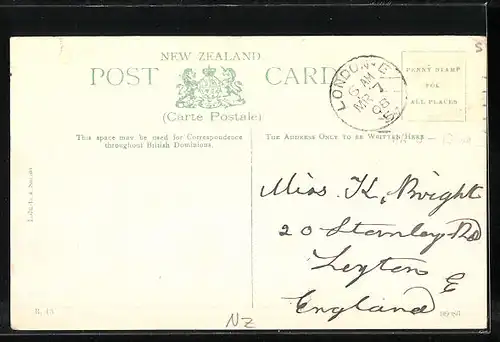 NEW ZEALAND
POST CARD
(Carte Postale)
This space may be used for Correspondence
throughout British Dominions.
THE ADDRESS ONLY TO BE WRITTEN HERE
PENNY STAMP
FOR
ALL PLACES
LONDON E
6 AM
MR 7
08
Miss. K. Bright
20 Sternley Rd
Leyton E
England
NZ